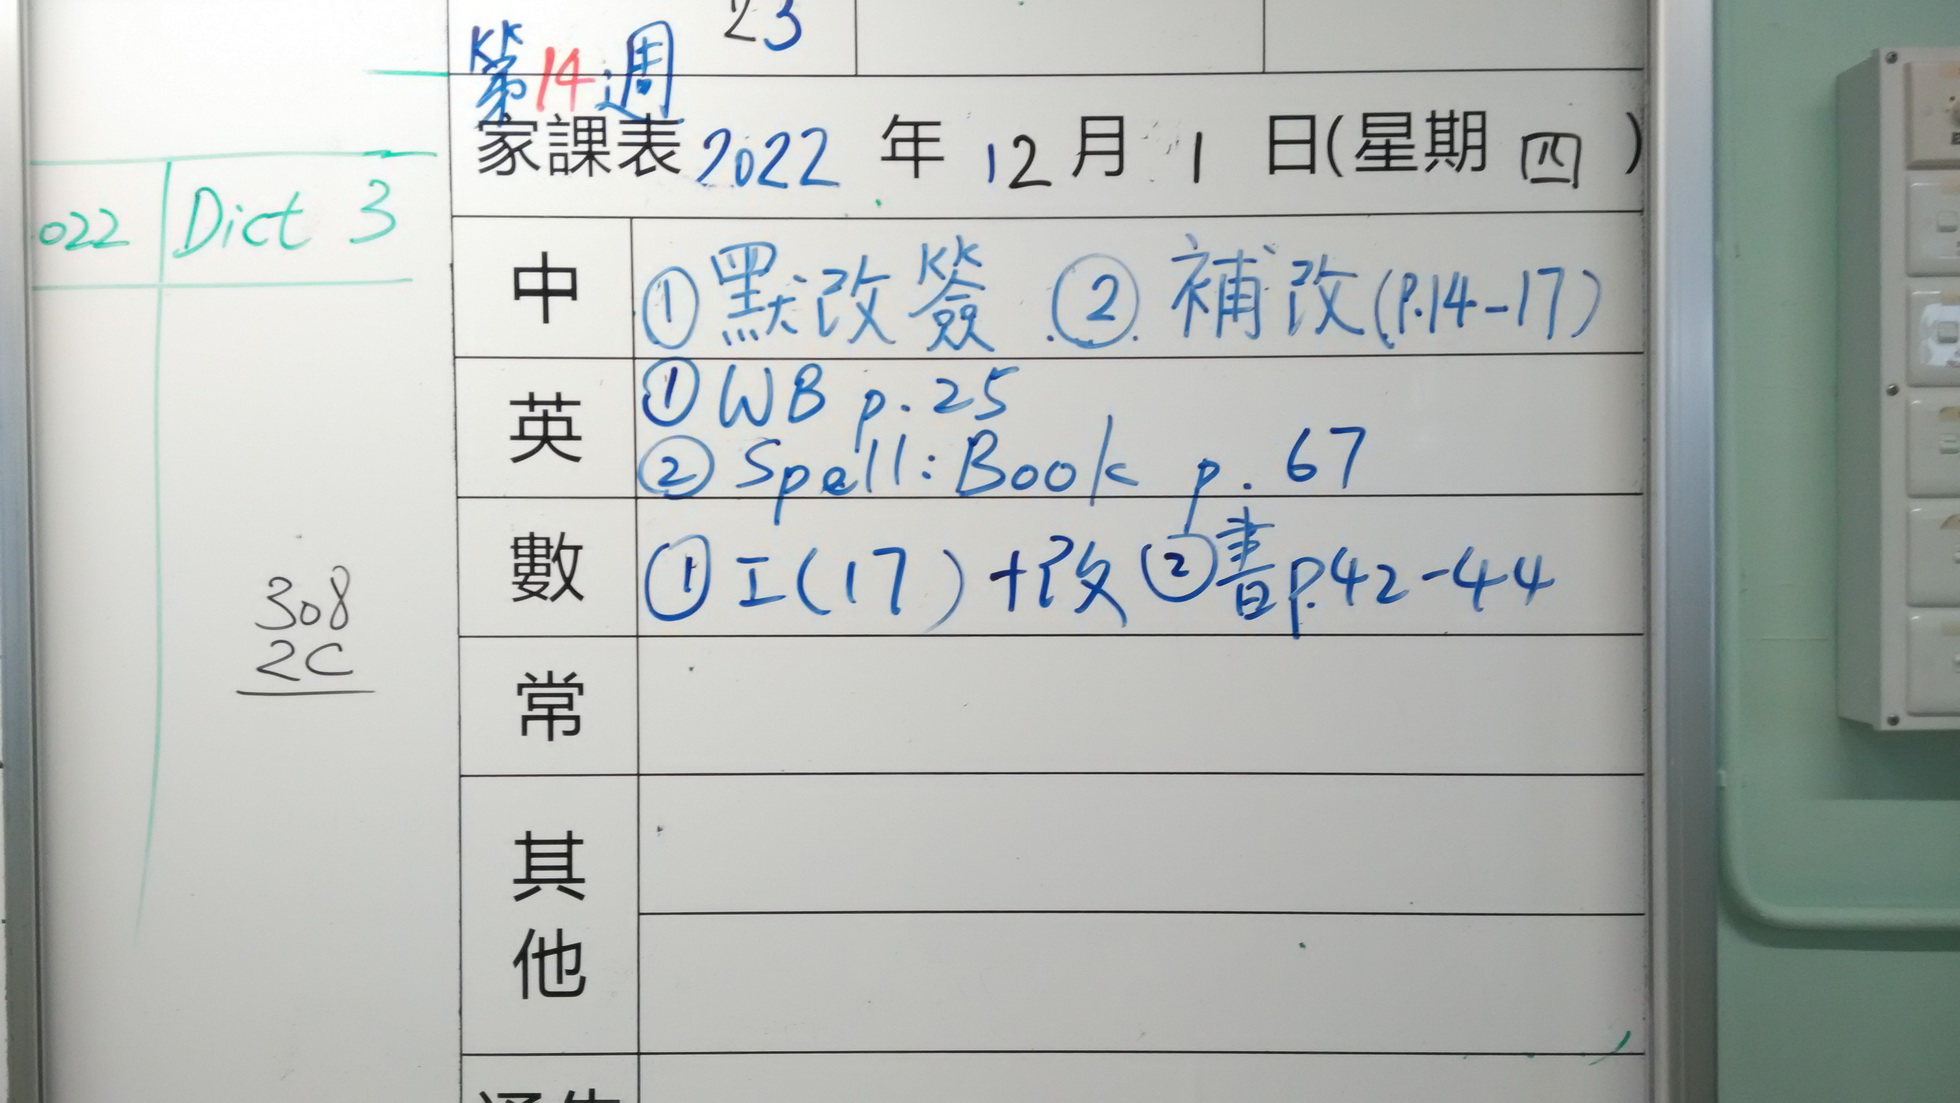 23
第14週
家課表 2022 年 12 月 1 日(星期 四 )
022 Dict 3
中 ①默改簽 ②補改(P.14-17)
英 ①WB p.25
②Spell:Book p.67
數 ①工(17)+改 ②書p.42-44
308
2C
常
其他
通告